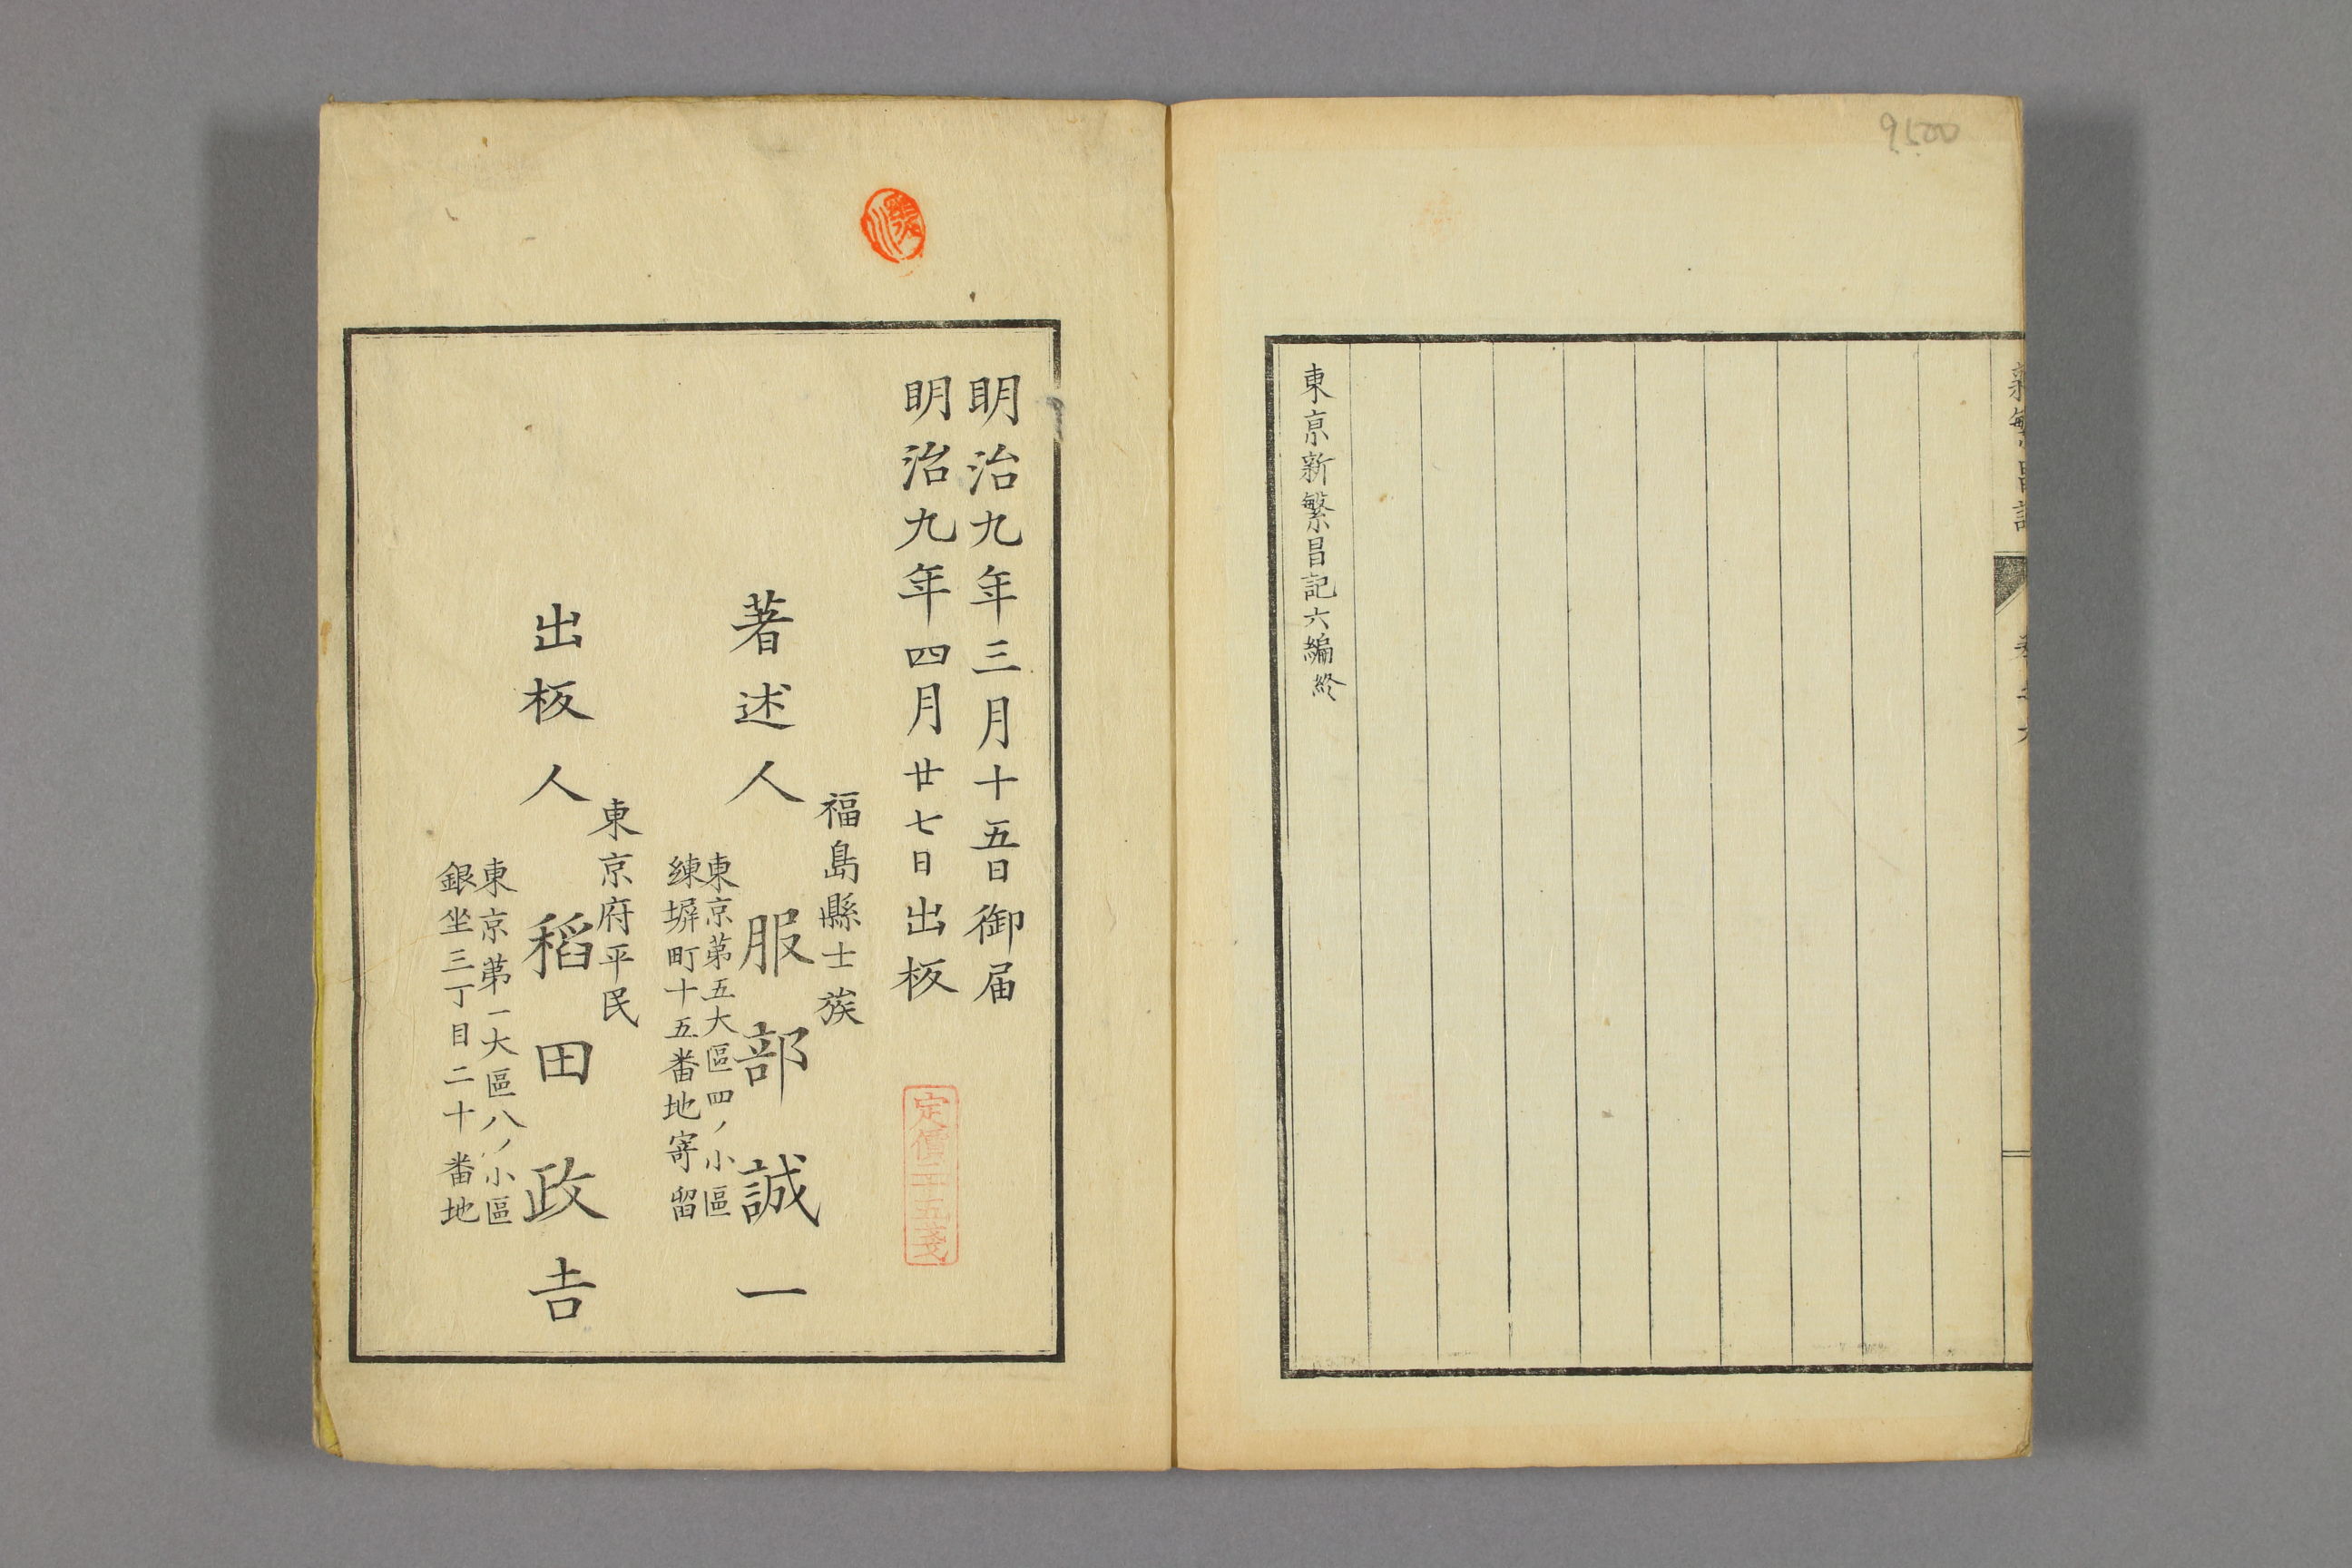 9500
東京新繁昌記六編終
明治九年三月十五日御届
明治九年四月廿七日出板
福島縣士族
著述人 服部誠一
東京第五大區四ノ小區
練塀町十五番地寄留
東京府平民
出板人 稻田政吉
東京第一大區八ノ小區
銀坐三丁目二十番地